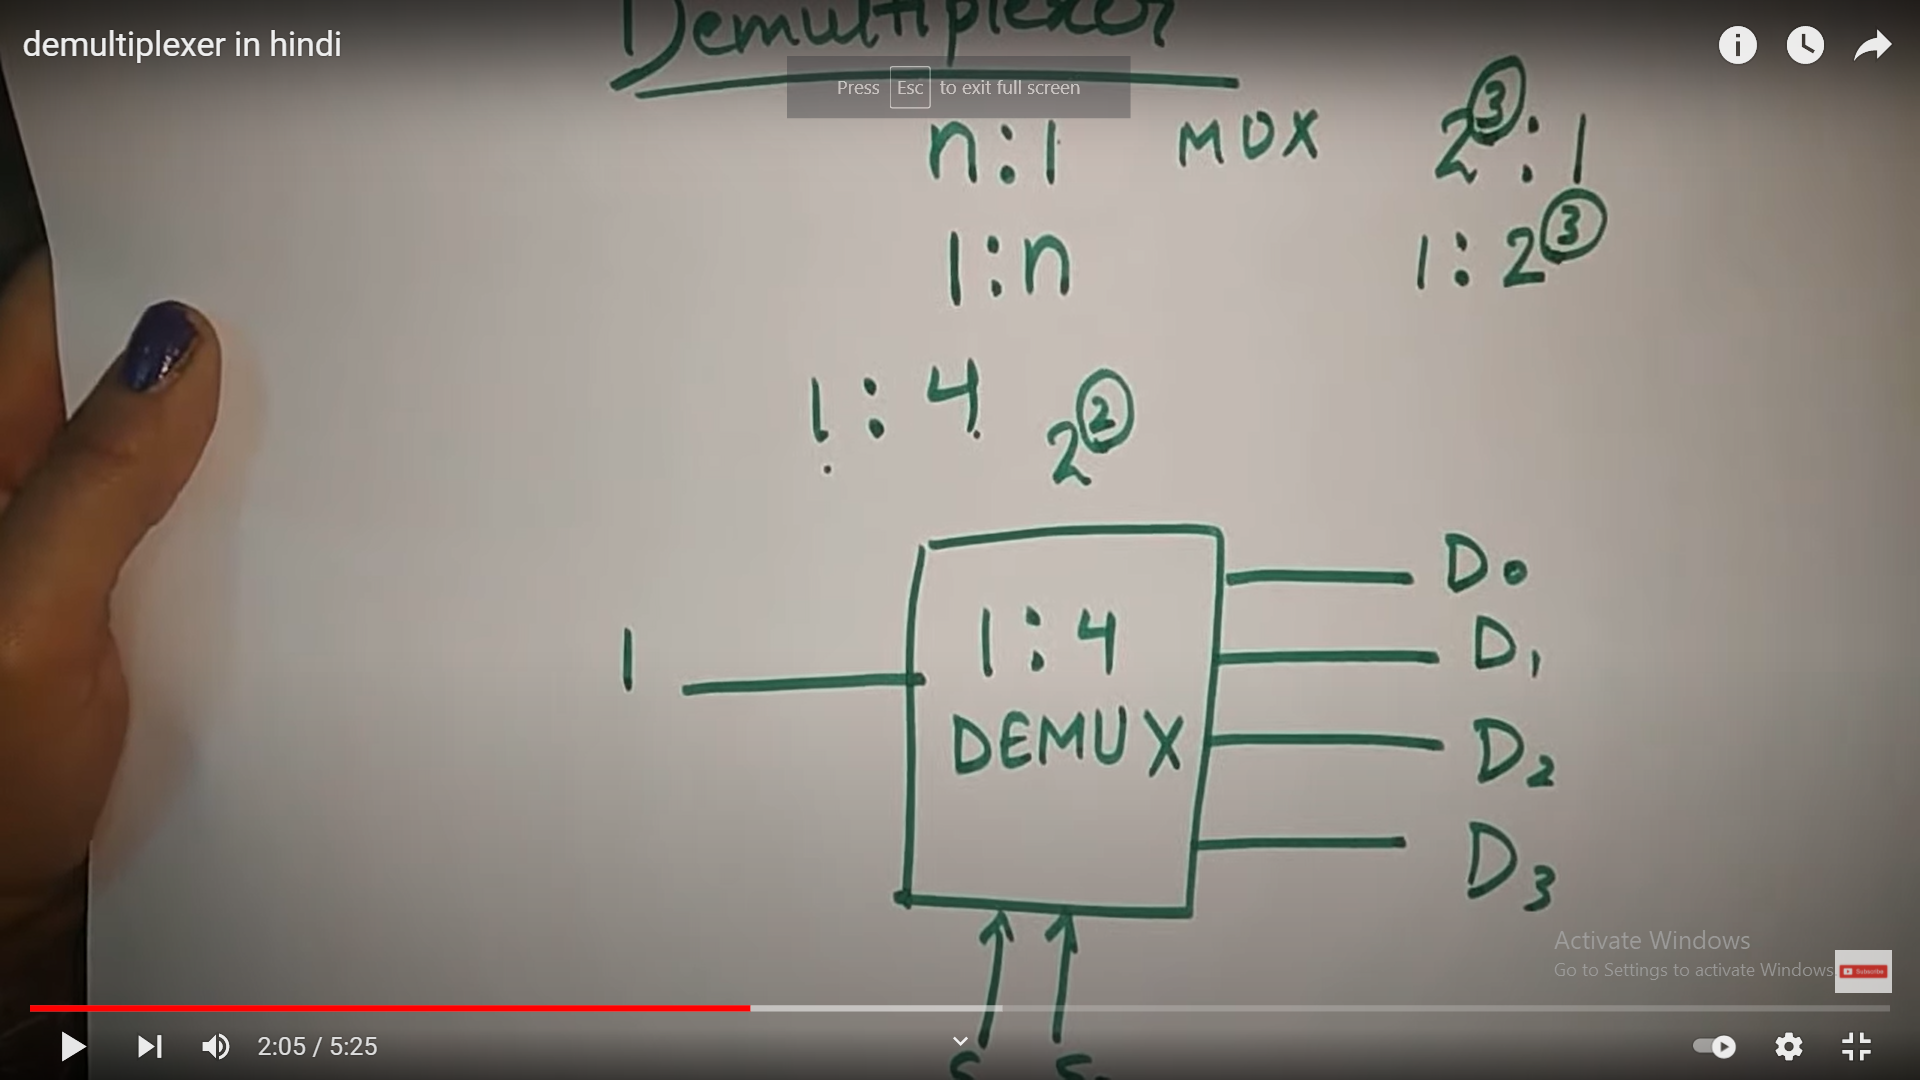 demultiplexer in hindi
Demultiplexer
Press Esc to exit full screen
n:1 MUX 2³:1
1:n 1:2³
1:4 2²
1:4
DEMUX
1
D₀
D₁
D₂
D₃
Activate Windows
Go to Settings to activate Windows.
Subscribe
2:05 / 5:25